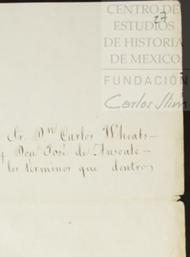 CENTRO DE
ESTUDIOS
DE HISTORIA
DE MEXICO
27
FUNDACIÓN
Carlos Slim
Sr. Dn Carlos Wheats
y Don José de Ansoate
los terminos que dentro